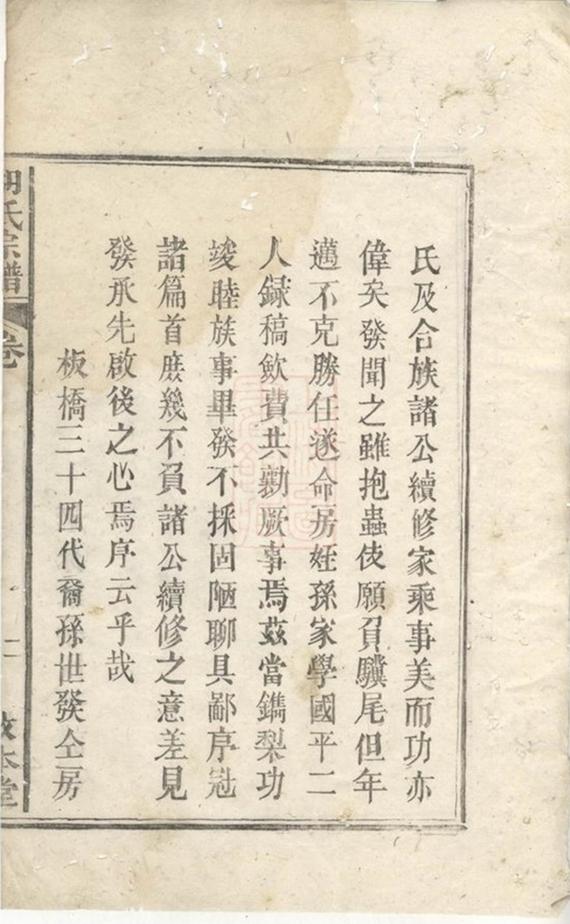 氏及合族諸公續修家乘事美而功亦
偉矣發聞之雖抱蟲伎願負驥尾但年
邁不克勝任遂命房姪孫家學國平二
人録稿斂費共勷厥事焉茲當鐫梨功
竣睦族事畢發不揣固陋聊具鄙序冠
諸篇首庶幾不負諸公續修之意差見
發承先啟後之心焉序云乎哉
板橋三十四代裔孫世發仝房
氏宗譜 卷 二 本堂